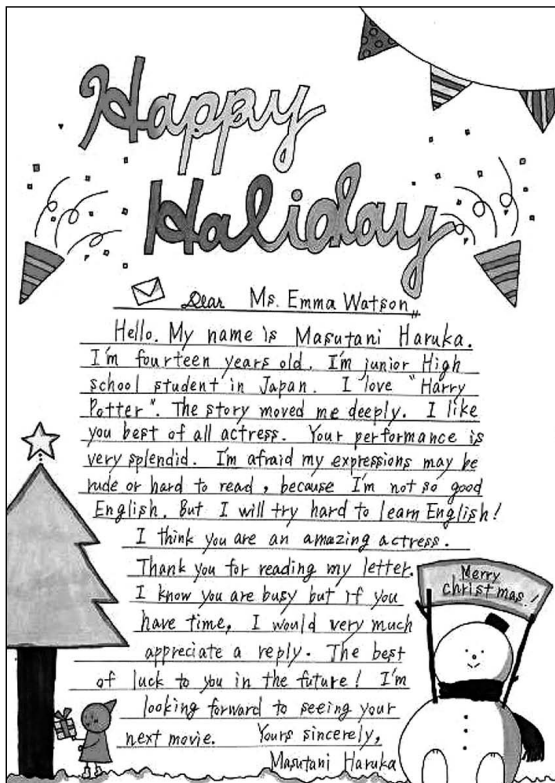 Happy
Haliday
Dear Ms. Emma Watson,,
Hello. My name is Masutani Haruka.
I'm fourteen years old. I'm junior High
school student in Japan. I love "Harry
Potter". The story moved me deeply. I like
you best of all actress. Your performance is
very splendid. I'm afraid my expressions may be
rude or hard to read, because I'm not so good
English. But I will try hard to learn English!
I think you are an amazing actress.
Thank you for reading my letter.
I know you are busy but if you
have time, I would very much
appreciate a reply. The best
of luck to you in the future! I'm
looking forward to seeing your
next movie. Yours sincerely,
Masutani Haruka
Merry
christmas!